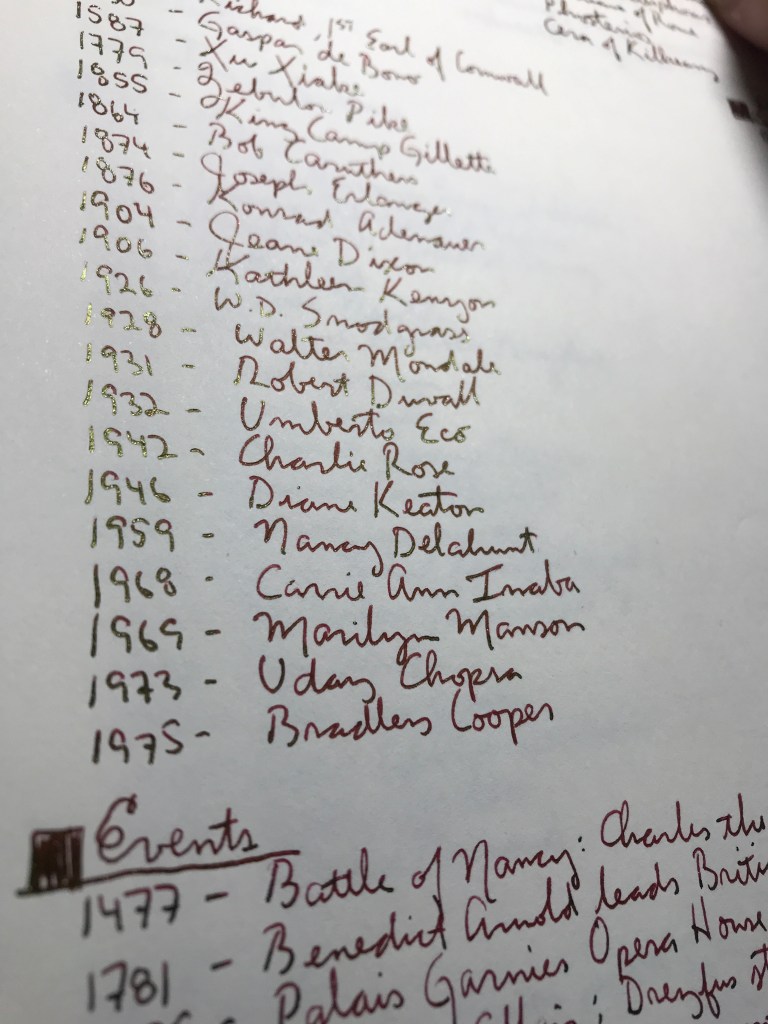 of Rome
Cera of Kilkeary
Richard, 1st Earl of Cornwall
1587 - Gaspar de Bono
1779 - Xu Xiake
1855 - Zebulon Pike
1864 - King Camp Gillette
1874 - Bob Caruthers
1876 - Joseph Erlanger
1904 - Konrad Adenauer
1906 - Jeane Dixon
1926 - Kathleen Kenyon
1928 - W.D. Snodgrass
1931 - Walter Mondale
1932 - Robert Duvall
1942 - Umberto Eco
1946 - Charlie Rose
1959 - Diane Keaton
1968 - Nancy Delahunt
1969 - Carrie Ann Inaba
1973 - Marilyn Manson
1975 - Uday Chopra
Bradley Cooper
Events
1477 - Battle of Nancy: Charles the
1781 - Benedict Arnold leads Briti
Palais Garnier Opera House
; Dreyfus st